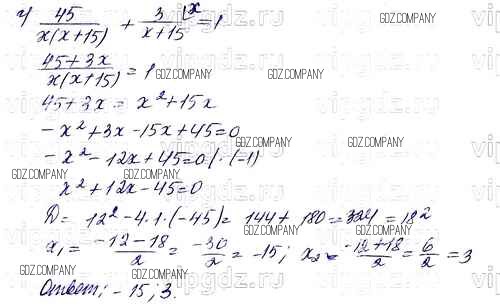 4) 45/(x(x+15)) + 3/(x+15) \x = 1
(45+3x)/(x(x+15)) = 1
45+3x = x²+15x
-x²+3x-15x+45=0
-x²-12x+45=0 /·(-1)
x²+12x-45=0
D= 12²-4·1·(-45)= 144+180=324=18²
x₁= (-12-18)/2 = -30/2 = -15; x₂= (-12+18)/2 = 6/2 = 3
Ответ: -15; 3.